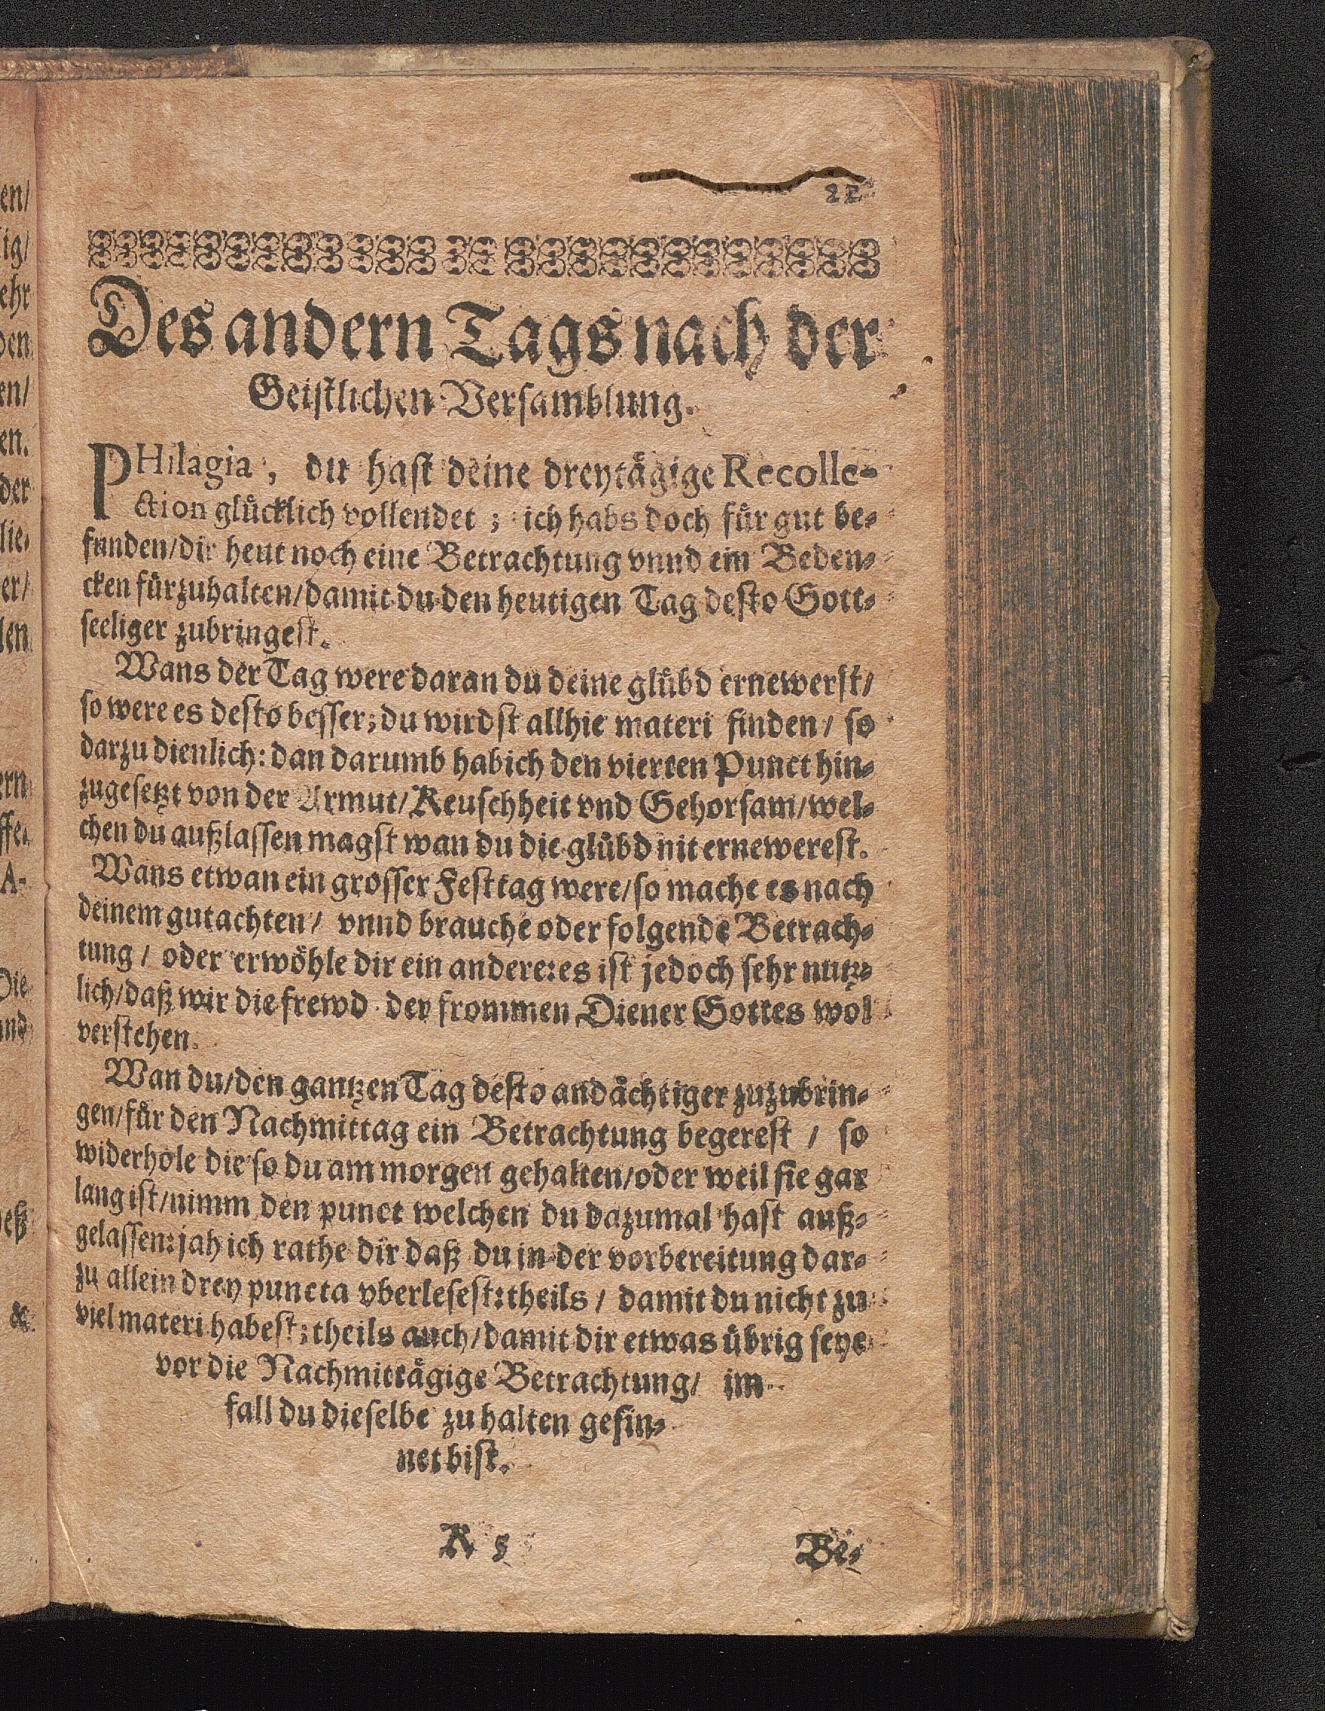 Des andern Tags nach der
Geistlichen Versamblung.
PHilagia, du hast deine dreytågige Recolle-
ction glůcklich vollendet; ich habs doch fůr gut be-
funden/dir heut noch eine Betrachtung vnnd ein Beden-
cken fůrzuhalten/damit du den heutigen Tag desto Gott-
seeliger zubringest.
Wans der Tag were daran du deine glůbd ernewerst/
so were es desto besser; du wirdst allhie materi finden/ so
darzu dienlich: dan darumb hab ich den vierten Punct hin-
zugesetzt von der Armut/Keuschheit vnd Gehorsam/wel-
chen du außlassen magst wan du die glůbd nit ernewerest.
Wans etwan ein grosser Festtag were/so mache es nach
deinem gutachten/ vnnd brauche oder folgende Betrach-
tung/ oder erwöhle dir ein andere: es ist jedoch sehr nutz-
lich/daß wir die frewd der frommen Diener Gottes wol
verstehen.
Wan du/den gantzen Tag desto andåchtiger zuzubrin-
gen/fůr den Nachmittag ein Betrachtung begerest / so
widerhole die so du am morgen gehalten/oder weil sie gar
lang ist/nimm den punct welchen du dazumal hast auß-
gelassen: jah ich rathe dir daß du in der vorbereitung dar-
zu allein drey puncta vberlesest: theils / damit du nicht zu
viel materi habest; theils auch/damit dir etwas übrig seye
vor die Nachmittågige Betrachtung/ im
fall du dieselbe zu halten gesin-
net bist.
K 5
Be-